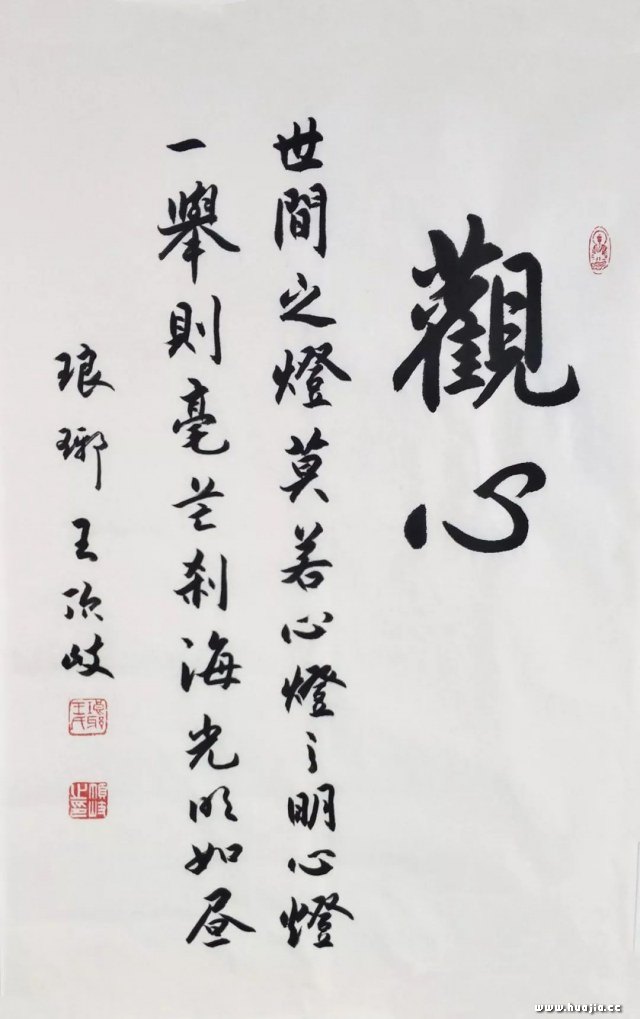 觀心
世間之燈莫若心燈之明心燈
一舉則毫芒剎海光明如昼
琅琊王欣岐
www.huajia.cc